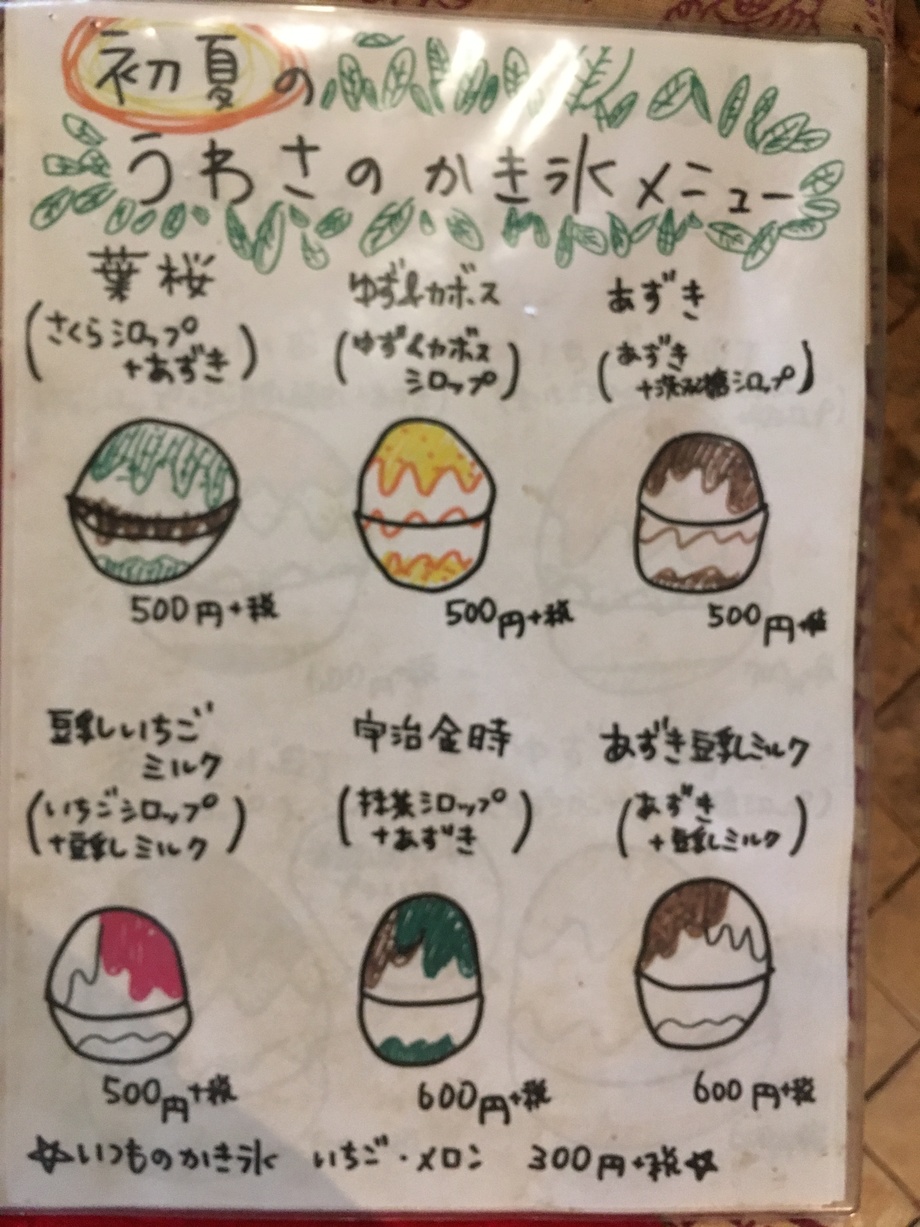 初夏の
うわさのかき氷メニュー
葉桜
(さくらシロップ
+あずき)
500円+税
ゆず&カボス
(ゆず&カボス
シロップ)
500円+税
あずき
(あずき
+黒糖シロップ)
500円+税
豆乳しいちご
ミルク
(いちごシロップ
+豆乳しミルク)
500円+税
宇治金時
(抹茶シロップ
+あずき)
600円+税
あずき豆乳しミルク
(あずき
+豆乳しミルク)
600円+税
☆いつものかき氷 いちご・メロン 300円+税☆